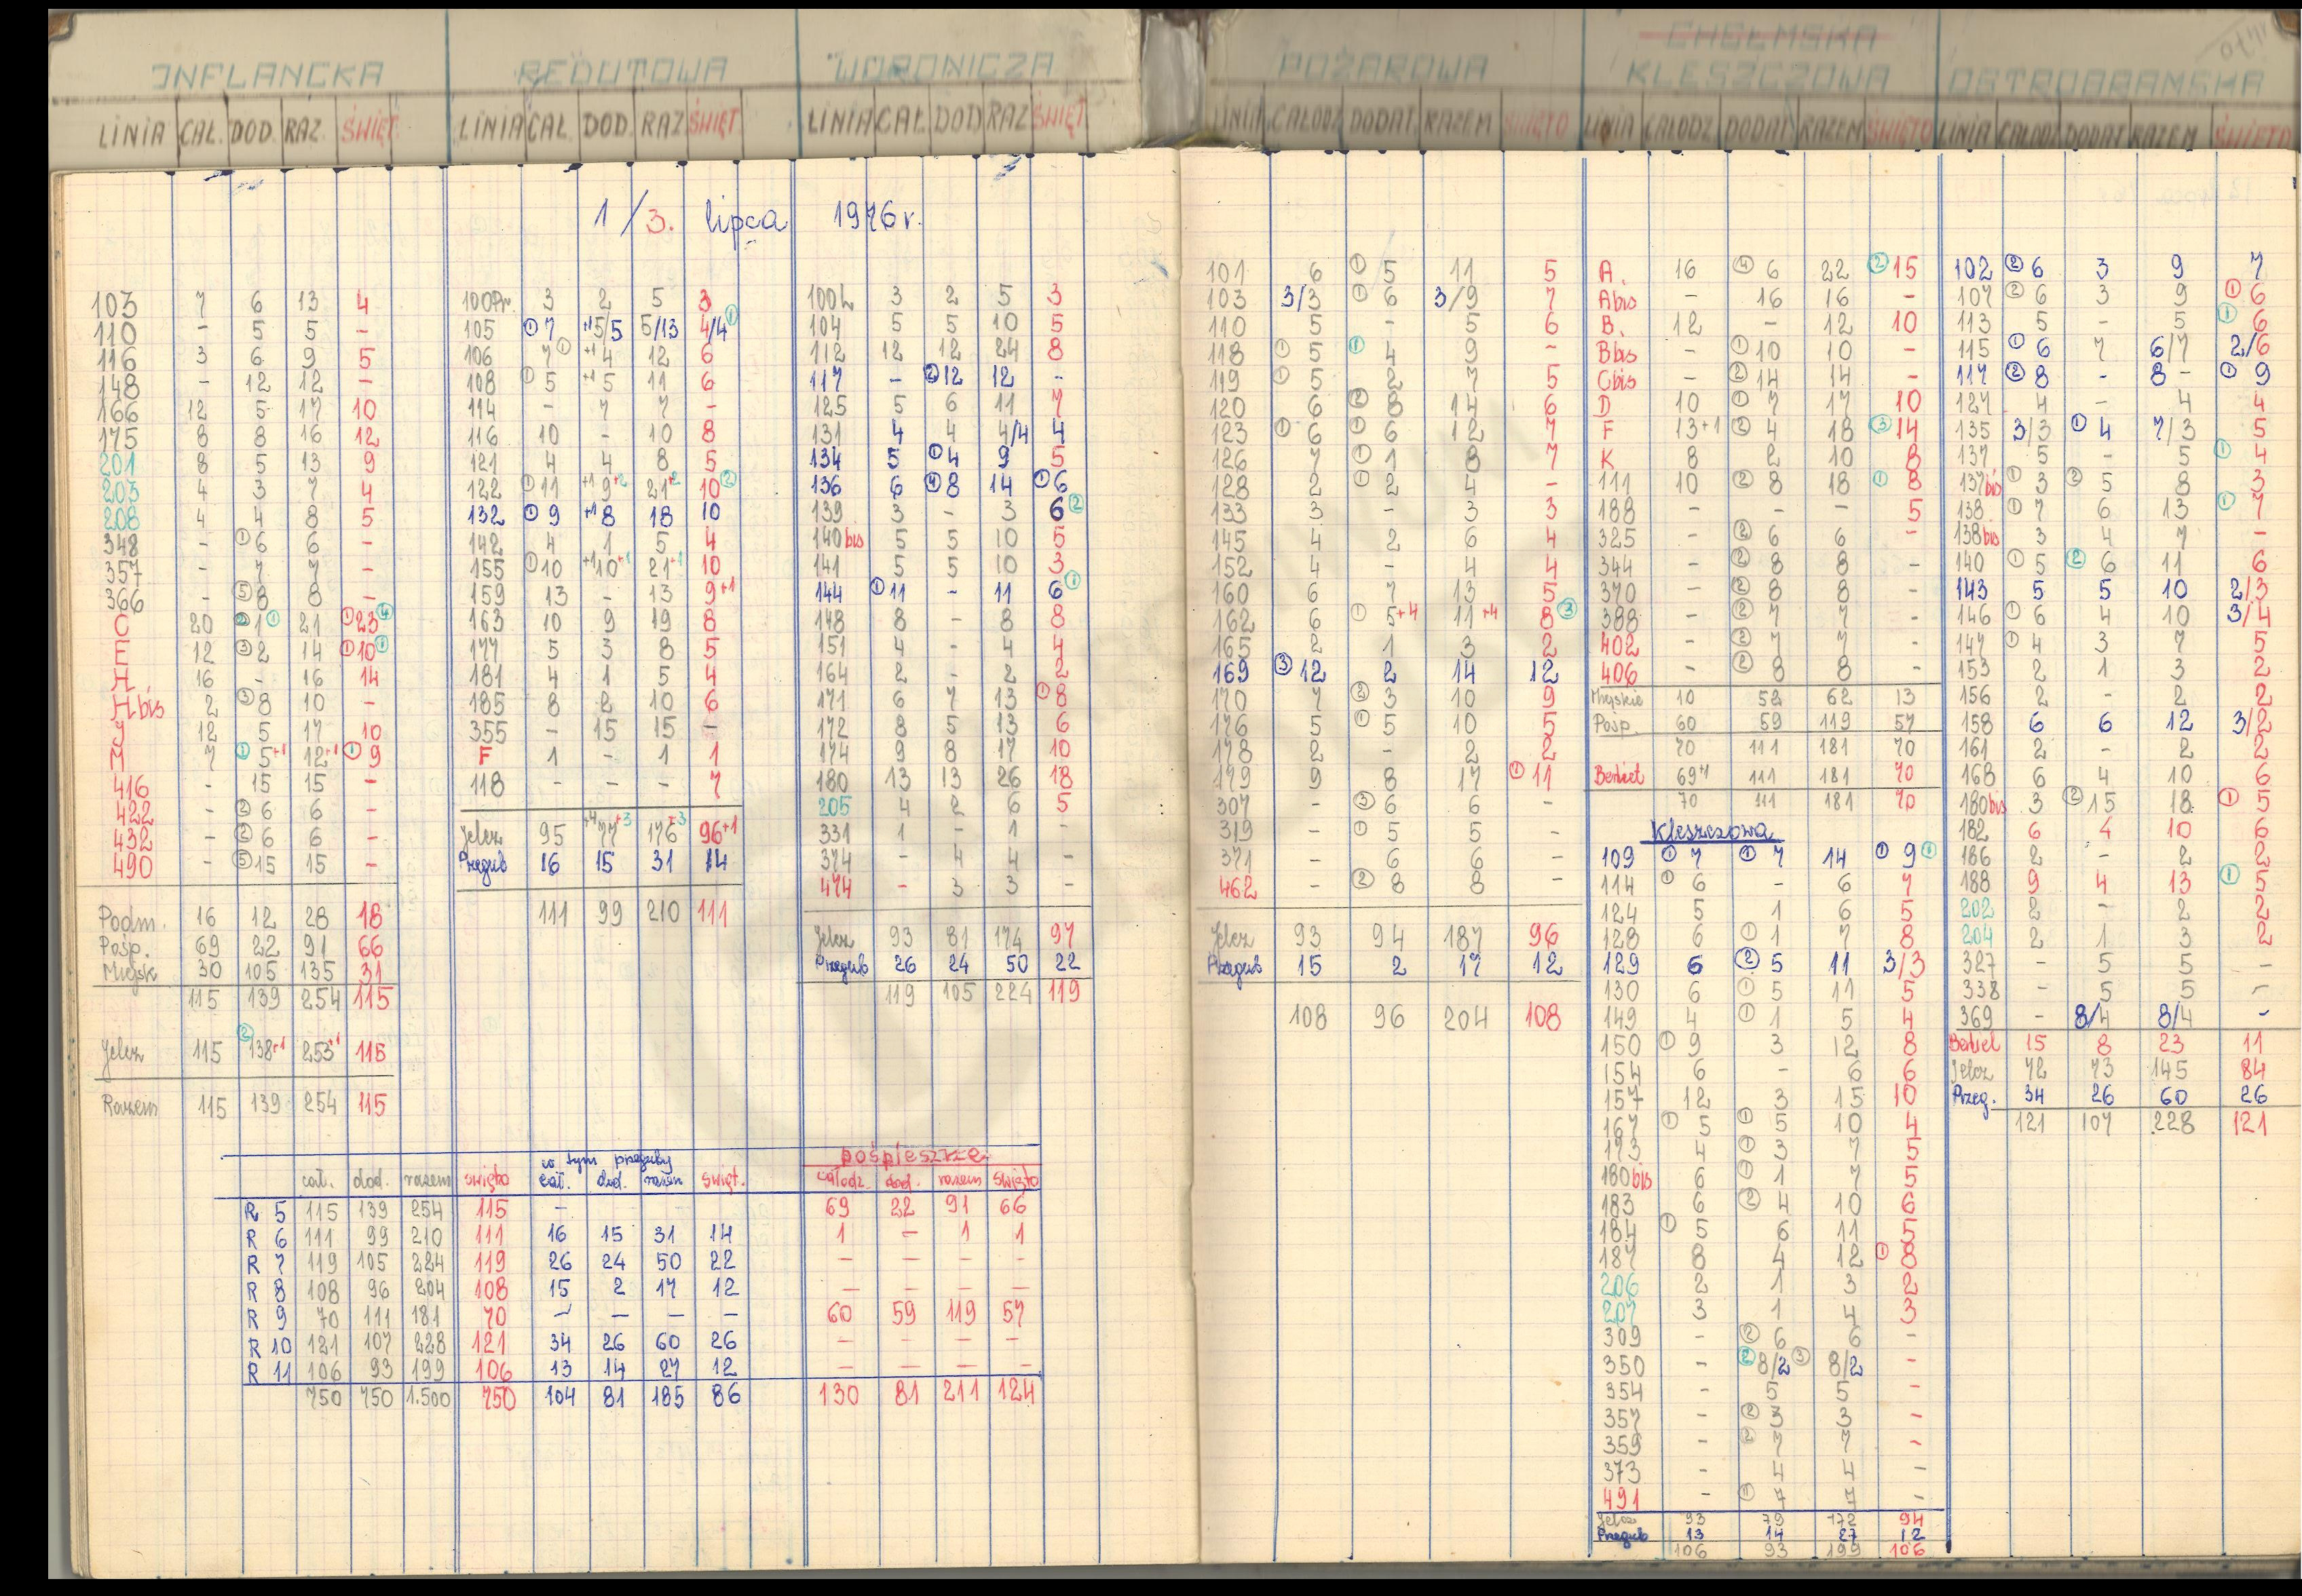 INFLANCKA
LINIA CAŁ. DOD. RAZ. ŚWIĘT
REDUTOWA
LINIA CAŁ. DOD. RAZ ŚWIĘT
WORONICZA
LINIA CAŁ DOD RAZ ŚWIĘT
POŻAROWA
LINIA CAŁODZ DODAT. RAZEM ŚWIĘTO
CHEŁMSKA
KLESZCZOWA
LINIA CAŁODZ. DODAT. RAZEM ŚWIĘTO
OSTROBRAMSKA
LINIA CAŁODZ DODAT RAZEM ŚWIĘTO
1/3. lipca 1976 r.
103 7 6 13 4
110 - 5 5 -
116 3 6 9 5
148 - 12 12 -
166 12 5 17 10
175 8 8 16 12
201 8 5 13 9
203 4 3 7 4
208 4 4 8 5
348 - ① 6 6 -
357 - 7 7 -
366 - ⑤ 8 8 -
C 20 ② 1 ① 21 ① 23 ④
E 12 ③ 2 14 ① 10 ①
H 16 - 16 14
H bis 2 ③ 8 10 -
J 12 5 17 10
M 7 ① 5+1 12+1 ① 9
416 - 15 15 -
422 - ② 6 6 -
432 - ② 6 6 -
490 - ⑤ 15 15 -
Podm. 16 12 28 18
Pośp. 69 22 91 66
Miejsk 30 105 135 31
115 139 254 115
Jelcz 115 ② 138+1 253+1 115
Razem 115 139 254 115
100Pr. 3 2 5 3
105 ① 7 +1 5/5 5/13 4/4 ①
106 7 ① +1 4 12 6
108 ① 5 +1 5 11 6
114 - 7 7 -
116 10 - 10 8
121 4 4 8 5
122 ① 11 +1 9+2 21+2 10 ②
132 ① 9 +1 8 18 10
142 4 1 5 4
155 ① 10 +1 10+1 21+1 10
159 13 - 13 9+1
163 10 9 19 8
177 5 3 8 5
181 4 1 5 4
185 8 2 10 6
355 - 15 15 -
F 1 - 1 1
118 - - - 7
Jelcz 95 +4 77+3 176+3 96+1
Przegub 16 15 31 14
111 99 210 111
100L 3 2 5 3
104 5 5 10 5
112 12 12 24 8
117 - ② 12 12 -
125 5 6 11 7
131 4 4 4/4 4
134 5 ① 4 9 5
136 6 ④ 8 14 ① 6
139 3 - 3 6 ②
140 bis 5 5 10 5
141 5 5 10 3
144 ① 11 - 11 6 ①
148 8 - 8 8
151 4 - 4 4
164 2 - 2 2
171 6 7 13 ① 8
172 8 5 13 6
174 9 8 17 10
180 13 13 26 18
205 4 2 6 5
331 1 - 1 -
374 - 4 4 -
474 - 3 3 -
Jelcz 93 81 174 97
Przegub 26 24 50 22
119 105 224 119
w tym przeguby pośpieszne
cał. dod. razem święto cał. dod. razem święt. całodz. dod. razem święto
R 5 115 139 254 115 - 69 22 91 66
R 6 111 99 210 111 16 15 31 14 1 - 1 1
R 7 119 105 224 119 26 24 50 22 - - - -
R 8 108 96 204 108 15 2 17 12 - - - -
R 9 70 111 181 70 - - - - 60 59 119 57
R 10 121 107 228 121 34 26 60 26 - - - -
R 11 106 93 199 106 13 14 27 12 - - - -
750 750 1.500 750 104 81 185 86 130 81 211 124
101 6 ① 5 11 5
103 3/3 ① 6 3/9 7
110 5 - 5 6
118 ① 5 ① 4 9 -
119 ① 5 2 7 5
120 6 ② 8 14 6
123 ① 6 ① 6 12 7
126 7 ① 1 8 7
128 2 ① 2 4 -
133 3 - 3 3
145 4 2 6 4
152 4 - 4 4
160 6 7 13 5
162 6 ① 5+4 11+4 8 ③
165 2 1 3 2
169 ③ 12 2 14 12
170 7 ② 3 10 9
176 5 ① 5 10 5
178 2 - 2 2
179 9 8 17 ① 11
307 - ③ 6 6 -
319 - ① 5 5 -
371 - 6 6 -
462 - ② 8 8 -
Jelcz 93 94 187 96
Przegub 15 2 17 12
108 96 204 108
A. 16 ④ 6 22 ② 15
Abis - 16 16 -
B. 12 - 12 10
Bbis - ① 10 10 -
Cbis - ② 14 14 -
D 10 ① 7 17 10
F 13+1 ② 4 18 ③ 14
K 8 2 10 8
111 10 ② 8 18 ① 8
188 - - - 5
325 - ② 6 6 -
344 - ② 8 8 -
370 - ② 8 8 -
388 - ② 7 7 -
402 - ② 7 7 -
406 - ② 8 8 -
Miejskie 10 52 62 13
Pośp. 60 59 119 57
70 111 181 70
Berliet 69+1 111 181 70
70 111 181 70
Kleszczowa
109 ① 7 ① 7 14 ① 9 ①
114 ① 6 - 6 7
124 5 1 6 5
128 6 ① 1 7 8
129 6 ② 5 11 3/3
130 6 ① 5 11 5
149 4 ① 1 5 4
150 ① 9 3 12 8
154 6 - 6 6
157 12 3 15 10
167 ① 5 ① 5 10 4
173 4 ① 3 7 5
180bis 6 ① 1 7 5
183 6 ② 4 10 6
184 ① 5 6 11 5
187 8 4 12 ① 8
206 2 1 3 2
207 3 1 4 3
309 - ② 6 6 -
350 - ② 8/2 ③ 8/2 -
354 - 5 5 -
357 - ② 3 3 -
359 - ② 7 7 -
373 - 4 4 -
491 - 7 7 -
Jelcz 93 79 172 94
Przegub 13 14 27 12
106 93 199 106
102 ② 6 3 9 7
107 ② 6 3 9 ① 6
113 5 - 5 ① 6
115 ① 6 7 6/7 2/6
117 ② 8 - 8 - ① 9
127 4 - 4 4
135 3/3 ① 4 7/3 5
137 5 - 5 ① 4
137bis ① 3 ② 5 8 3
138. ① 7 6 13 ① 7
138bis 3 4 7 -
140 ① 5 ② 6 11 6
143 5 5 10 2/3
146 ① 6 4 10 3/4
147 ① 4 3 7 5
153 2 1 3 2
156 2 - 2 2
158 6 6 12 3/2
161 2 - 2 2
168 6 4 10 6
180bis 3 ② 15 18. ① 5
182 6 4 10 6
186 2 - 2 2
188 9 4 13 ① 5
202 2 - 2 2
204 2 1 3 2
327 - 5 5 -
338 - 5 5 -
369 - 8/4 8/4 -
Berliet 15 8 23 11
Jelcz 72 73 145 84
Przeg. 34 26 60 26
121 107 228 121